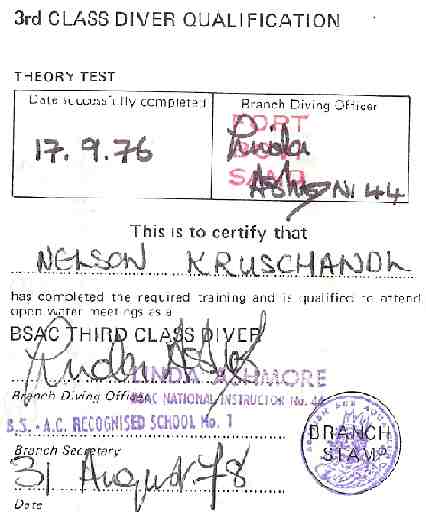 3rd CLASS DIVER QUALIFICATION
THEORY TEST
Date successfully completed
Branch Diving Officer
17.9.76
FORT
BOVI
SAND
Linda
Ashmore NI 44
This is to certify that
NELSON KRUSCHANDL
has completed the required training and is qualified to attend
open water meetings as a
BSAC THIRD CLASS DIVER
LINDA ASHMORE
Branch Diving Officer
BSAC NATIONAL INSTRUCTOR No. 44
B.S.-A.C. RECOGNISED SCHOOL No. 1
BRANCH
STAMP
Branch Secretary
31 August 78
Date